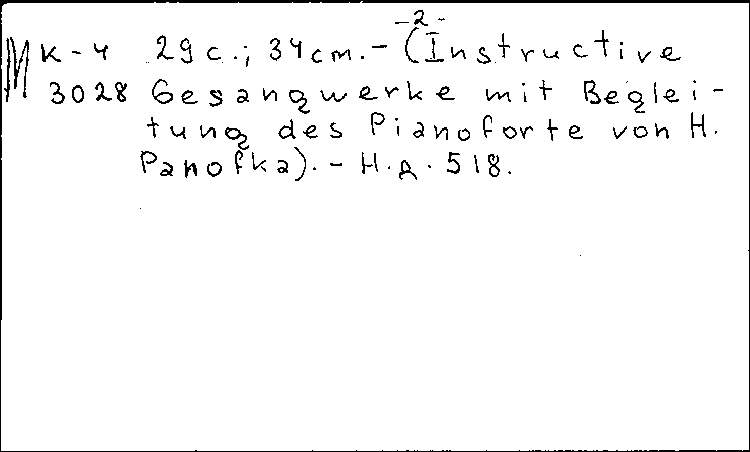 -2-
М К-4 29 с.; 34 см. - (Instructive
3028 Gesangwerke mit Beglei-
tung des Pianoforte von H.
Panofka). - Н.д. 518.